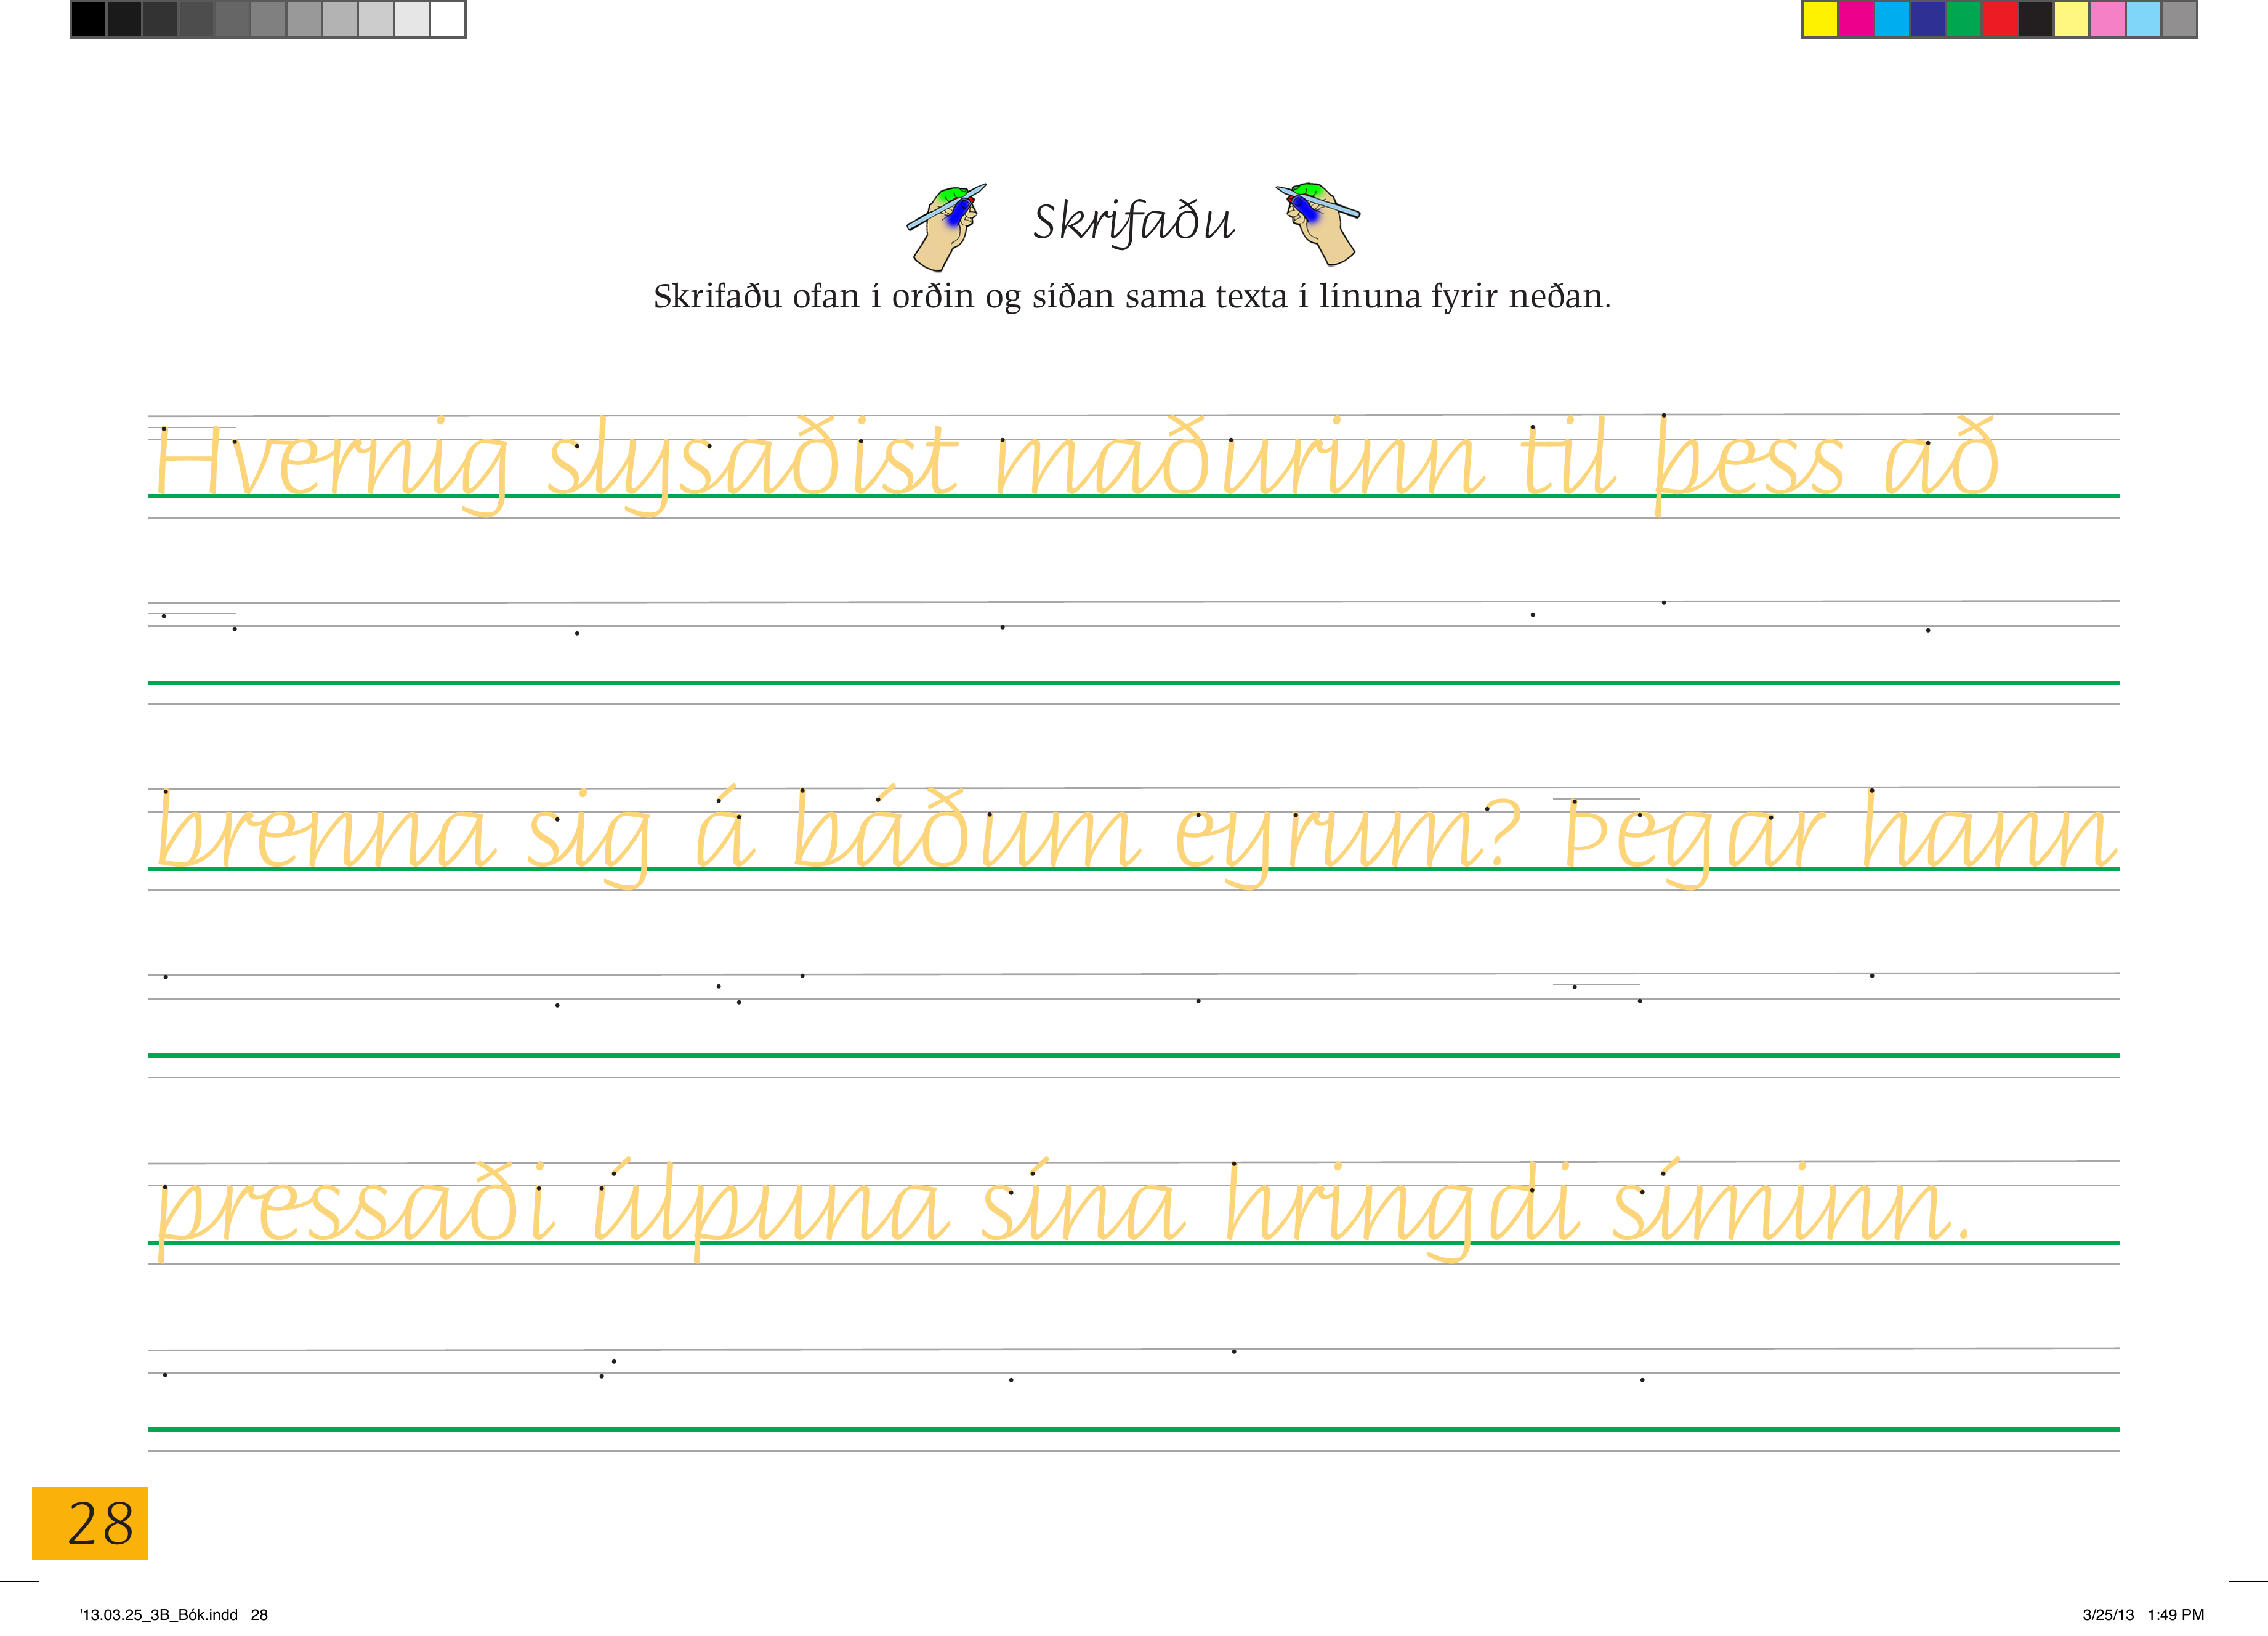 Skrifaðu
Skrifaðu ofan í orðin og síðan sama texta í línuna fyrir neðan.
Hvernig slysaðist maðurinn til þess að
brenna sig á báðum eyrum? Þegar hann
pressaði úlpuna sína hringdi síminn.
28
'13.03.25_3B_Bók.indd 28
3/25/13 1:49 PM